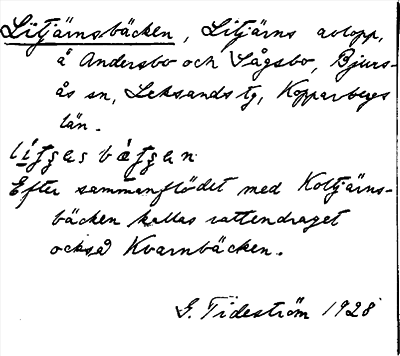 Litjärnsbäcken, Litjärns avlopp,
å Andersbo och Sågsbo, Bjurs-
ås sn, Leksands tg, Kopparbergs
län.
Efter sammanflödet med Koltjärns-
bäcken kallas vattendraget
också Kvarnbäcken.
G. Tideström 1928